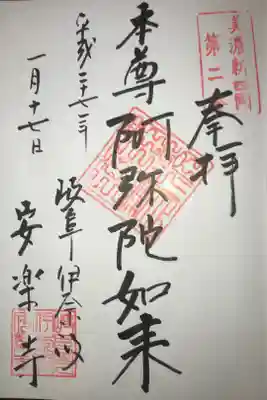 美濃新四国
第二
奉拝
本尊阿弥陀如来
平成二十七年
一月十七日
岐阜伊奈波
安楽寺